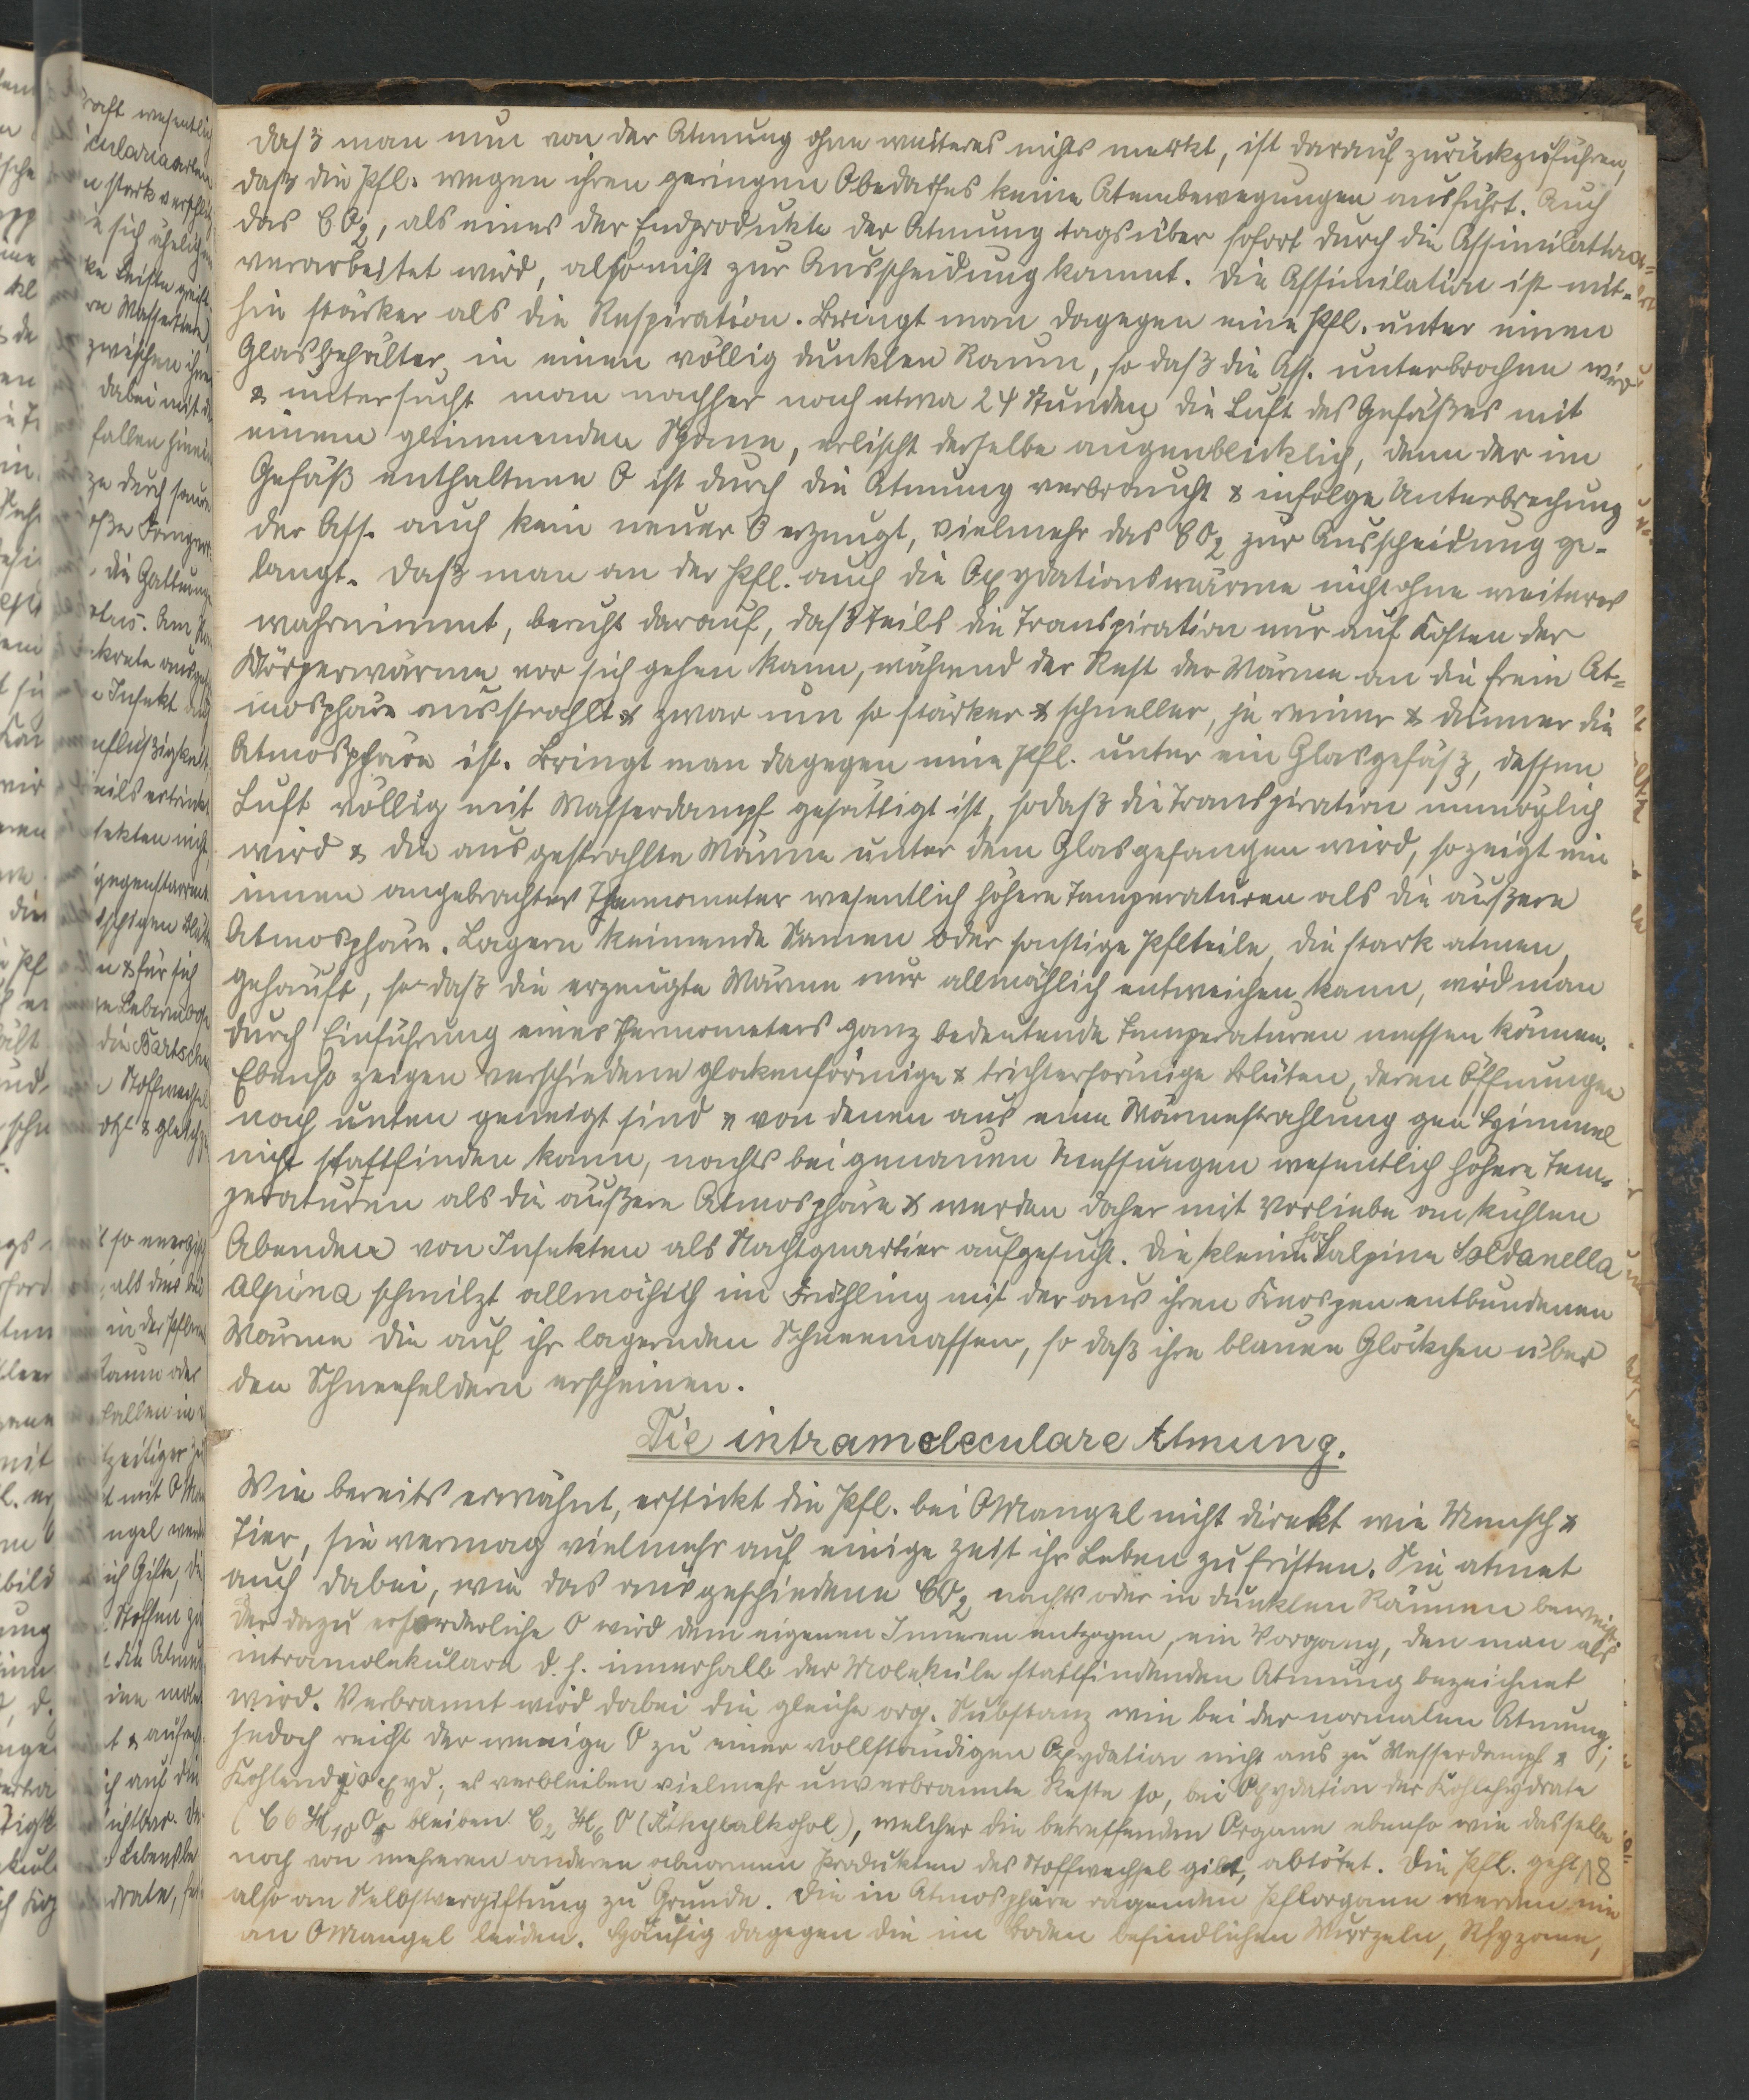 daß man nun von der Atmung ohne weiteres nichts merkt, ist darauf zurückzuführen,
daß die Pfl. wegen ihren geringen Obedarfes keine Atembewegungen ausführt. Auch
das CO2, als eines der Endprodukte der Atmung tagsüber sofort durch die Assimilation
verarbeitet wird, also nicht zur Ausscheidung kommt. Die Assimilation ist mit-
hin stärker als die Respiration. Bringt man dagegen eine Pfl. unter einen
Glasbehälter in einen völlig dunklen Raum, so daß die Ass. unterbrochen wird
& untersucht man nachher nach etwa 24 Stunden die Luft des Gefäßes mit
einem glimmenden Spane, erlischt derselbe augenblicklich, denn der im
Gefäß enthaltene O ist durch die Atmung verbraucht & infolge Unterbrechung
der Ass. auch kein neuer O erzeugt, vielmehr das CO2 zur Ausscheidung ge-
langt. Daß man an der Pfl. auch die Oxydationswärme nicht ohne weiteres
wahrnimmt, beruht darauf, daß teils die Transpiration nur auf Kosten der
Körperwärme vor sich gehen kann, während der Rest der Wärme an die freie At=
mosphäre ausstrahlt & zwar um so stärker & schneller, je reiner & dünner die
Atmosphäre ist. Bringt man dagegen eine Pfl. unter ein Glasgefäß, dessen
Luft völlig mit Wasserdampf gesättigt ist, sodaß die Transpiration unmöglich
wird & die ausgestrahlte Wärme unter dem Glas gefangen wird, so zeigt ein
innen angebrachter Thermometer wesentlich höhere Temperaturen als die äußere
Atmosphäre. Lagern keimende Samen oder sonstige Pflteile, die stark atmen,
gehäuft, so daß die erzeugte Wärme nur allmählich entweichen kann, wird man
durch Einführung eines Thermometers ganz bedeutende Temperaturen messen können.
Ebenso zeigen verschiedene glockenförmige & trichterförmige Blüten, deren Öffnungen
nach unten geneigt sind & von denen aus eine Wärmestrahlung gen Himmel
nicht stattfinden kann, nachts bei genauen Messungen wesentlich höhere Tem-
peraturen als die äußere Atmosphäre & werden daher mit Vorliebe an kühlen
Abenden von Insekten als Nachtquartier aufgesucht. Die kleine hochalpine Soldanella
alpina schmilzt allmählich im Frühling mit der aus ihren Knospen entbundenen
Wärme die auf ihr lagernden Schneemassen, so daß ihre blauen Glöckchen über
den Schneefeldern erscheinen.
Die intramoleculare Atmung.
Wie bereits erwähnt, erstickt die Pfl. bei OMangel nicht direkt wie Mensch &
Tier, sie vermag vielmehr auf einige Zeit ihr Leben zu fristen. Sie atmet
auch dabei, wie das ausgeschiedene CO2 nachts oder in dunklen Räumen beweist.
Der dazu erforderliche O wird dem eigenen Inneren entzogen, ein Vorgang, den man als
intramolekulare d. h. innerhalb der Moleküle stattfindenden Atmung bezeichnet
wird. Verbrannt wird dabei die gleiche org. Substanz wie bei der normalen Atmung;
jedoch reicht der wenige O zu einer vollständigen Oxydation nicht aus zu Wasserdampf &
Kohlendioxyd; es verbleiben vielmehr unverbrannte Reste so, bei Oxydation der Kohlehydrate
(C6 H10 O5 bleiben C2 H6 O (Äthylalkohol), welcher die betreffenden Organe ebenso wie dasselbe
noch von mehreren anderen abnormen Produkten des Stoffwechsel gilt, abtötet. Die Pfl. geht
also an Selbstvergiftung zu Grunde. Die in Atmosphäre ragenden Pflorgane werden nie
an OMangel leiden. Häufig dagegen die im Boden befindlichen Wurzeln, Rhyzome,
18